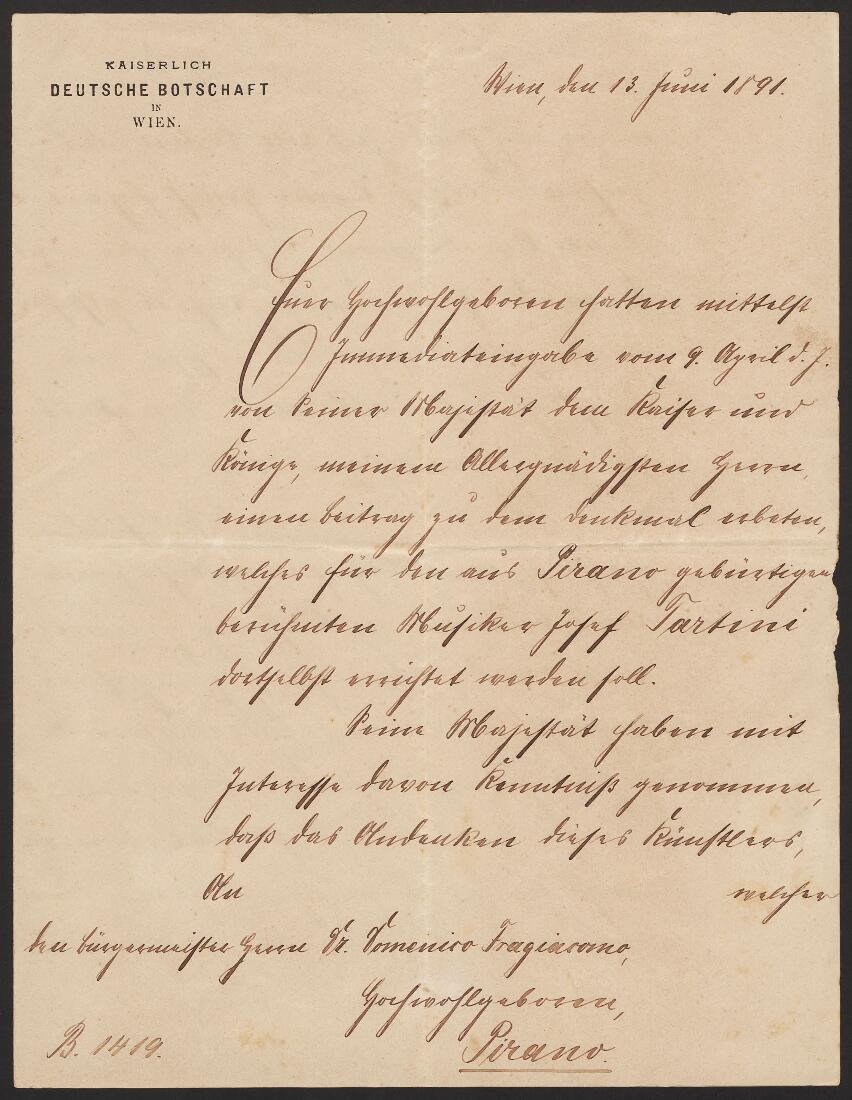 KAISERLICH
DEUTSCHE BOTSCHAFT
IN
WIEN.
Wien, den 13. Juni 1891.
Euer Hochwohlgeboren hatten mittelst
Immediateingabe vom 9. April d. J.
von Seiner Majestät dem Kaiser und
Könige, meinem Allergnädigsten Herrn,
einen Beitrag zu dem Denkmal erbeten,
welches für den aus Pirano gebürtigen
berühmten Musiker Josef Tartini
dortselbst errichtet werden soll.
Seine Majestät haben mit
Interesse davon Kenntniß genommen,
daß das Andenken dieses Künstlers,
An welcher
den Bürgermeister Herrn Dr. Domenico Fragiacomo,
Hochwohlgeboren,
B. 1419. Pirano.